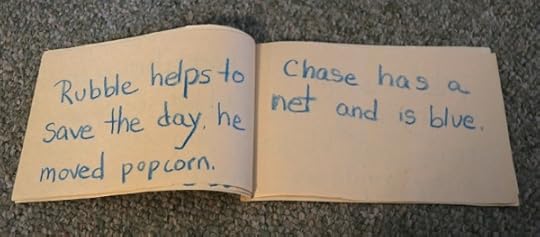 Rubble helps to
save the day, he
moved popcorn.
Chase has a
net and is blue.